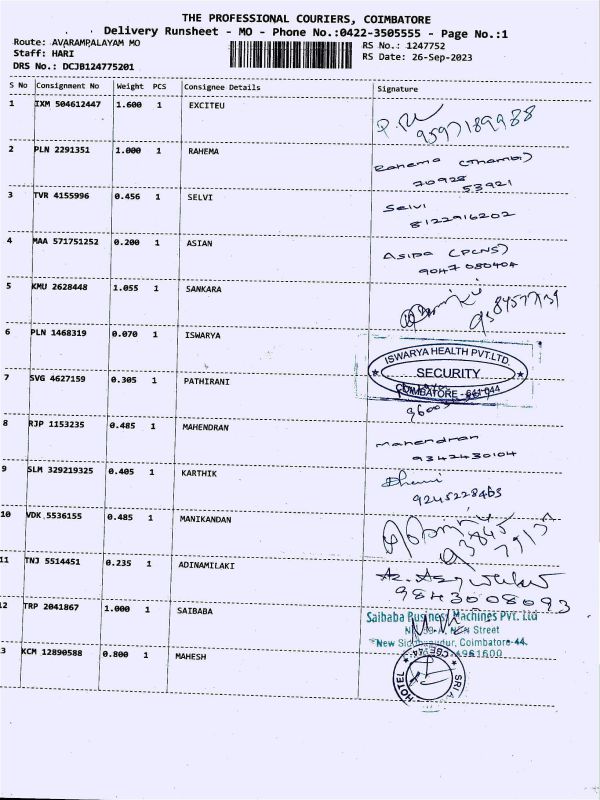 THE PROFESSIONAL COURIERS, COIMBATORE
Delivery Runsheet - MO - Phone No.:0422-3505555 - Page No.:1
Route: AVARAMPALAYAM MO
Staff: HARI
DRS No.: DCJB124775201
RS No.: 1247752
RS Date: 26-Sep-2023
S No Consignment No Weight PCS Consignee Details Signature
1 IXM 504612447 1.600 1 EXCITEU
9597189988
2 PLN 2291351 1.000 1 RAHEMA
Rahema (Thambi)
70928
53921
3 TVR 4155996 0.456 1 SELVI
Selvi
8122916202
4 MAA 571751252 0.200 1 ASIAN
9047080404
5 KMU 2628448 1.055 1 SANKARA
6 PLN 1468319 0.070 1 ISWARYA
ISWARYA HEALTH PVT.LTD
SECURITY
COIMBATORE - 641 044
7 SVG 4627159 0.305 1 PATHIRANI
8 RJP 1153235 0.485 1 MAHENDRAN
Mahendran
9342430104
9 SLM 329219325 0.405 1 KARTHIK
9245228463
10 VDK 5536155 0.485 1 MANIKANDAN
11 TNJ 5514451 0.235 1 ADINAMILAKI
9843008093
2 TRP 2041867 1.000 1 SAIBABA
Saibaba Business Machines Pvt. Ltd
Street
New Coimbatore-44.
3 KCM 12890588 0.800 1 MAHESH
HOTEL SRI